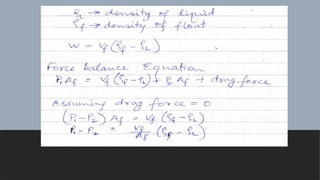 ρL → density of liquid
ρf → density of float
W = Vf (ρf - ρL)
Force balance Equation
P1 Af = Vf (ρf - ρL) + P2 Af + drag force
Assuming drag force = 0
(P1 - P2) Af = Vf (ρf - ρL)
P1 - P2 = Vf/Af (ρf - ρL)